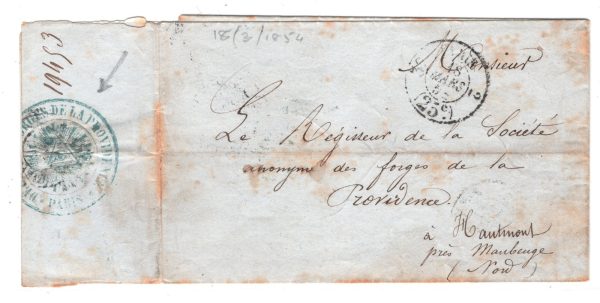 18/3/1854
19453
Monsieur
18
MARS
(25c)
Le Régisseur de la Société
anonyme des forges de la
Providence.
à Hautmont
près Maubeuge
(Nord)
DE LA PROVIDENCE
PARIS